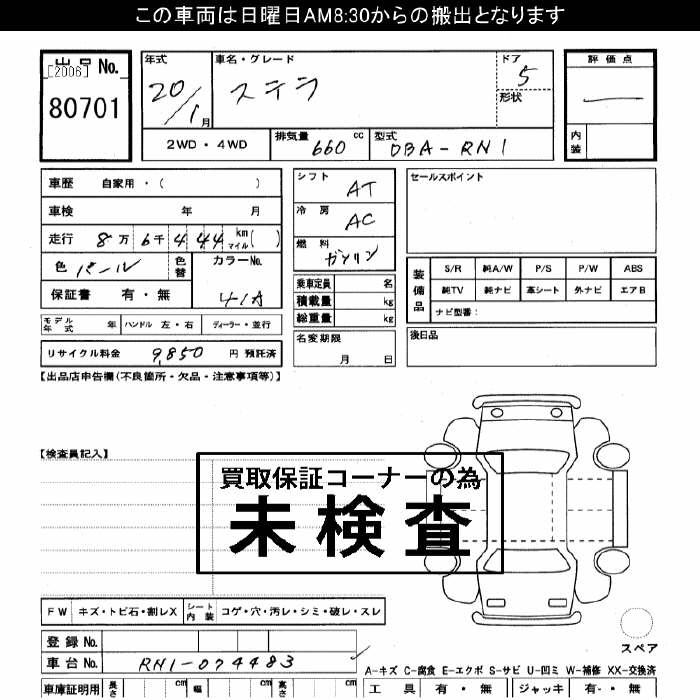 この車両は日曜日AM8:30からの搬出となります
出品 No.
[2006]
80701
年式 車名・グレード ドア 評価点
20/1月 ステラ 5
形状
内装
2WD・4WD 排気量 660 cc 型式 DBA-RN1
車歴 自家用・( )
シフト AT
セールスポイント
車検 年 月
冷房 AC
走行 8万 6千 444 km マイル ( )
燃料 ガソリン
色 パール 色替 カラーNo.
装備品 S/R 純A/W P/S P/W ABS
保証書 有・無 41A
乗車定員 名
純TV 純ナビ 革シート 外ナビ エアB
積載量 kg
ナビ型番:
モデル年式 年 ハンドル 左・右 ディーラー・並行
総重量 kg
後日品
リサイクル料金 9,850 円 預託済
名変期限 月 日
【出品店申告欄(不良箇所・欠品・注意事項等)】
【検査員記入】
買取保証コーナーの為
未検査
FW キズ・トビ石・割レX シート内装 コゲ・穴・汚レ・シミ・破レ・スレ
登録No.
スペア
車台No. RN1-074483
A-キズ C-腐食 E-エクボ S-サビ U-凹ミ W-補修 XX-交換済
車庫証明用 長さ cm 幅 cm 高さ cm
工具 有・無 ジャッキ 有・無